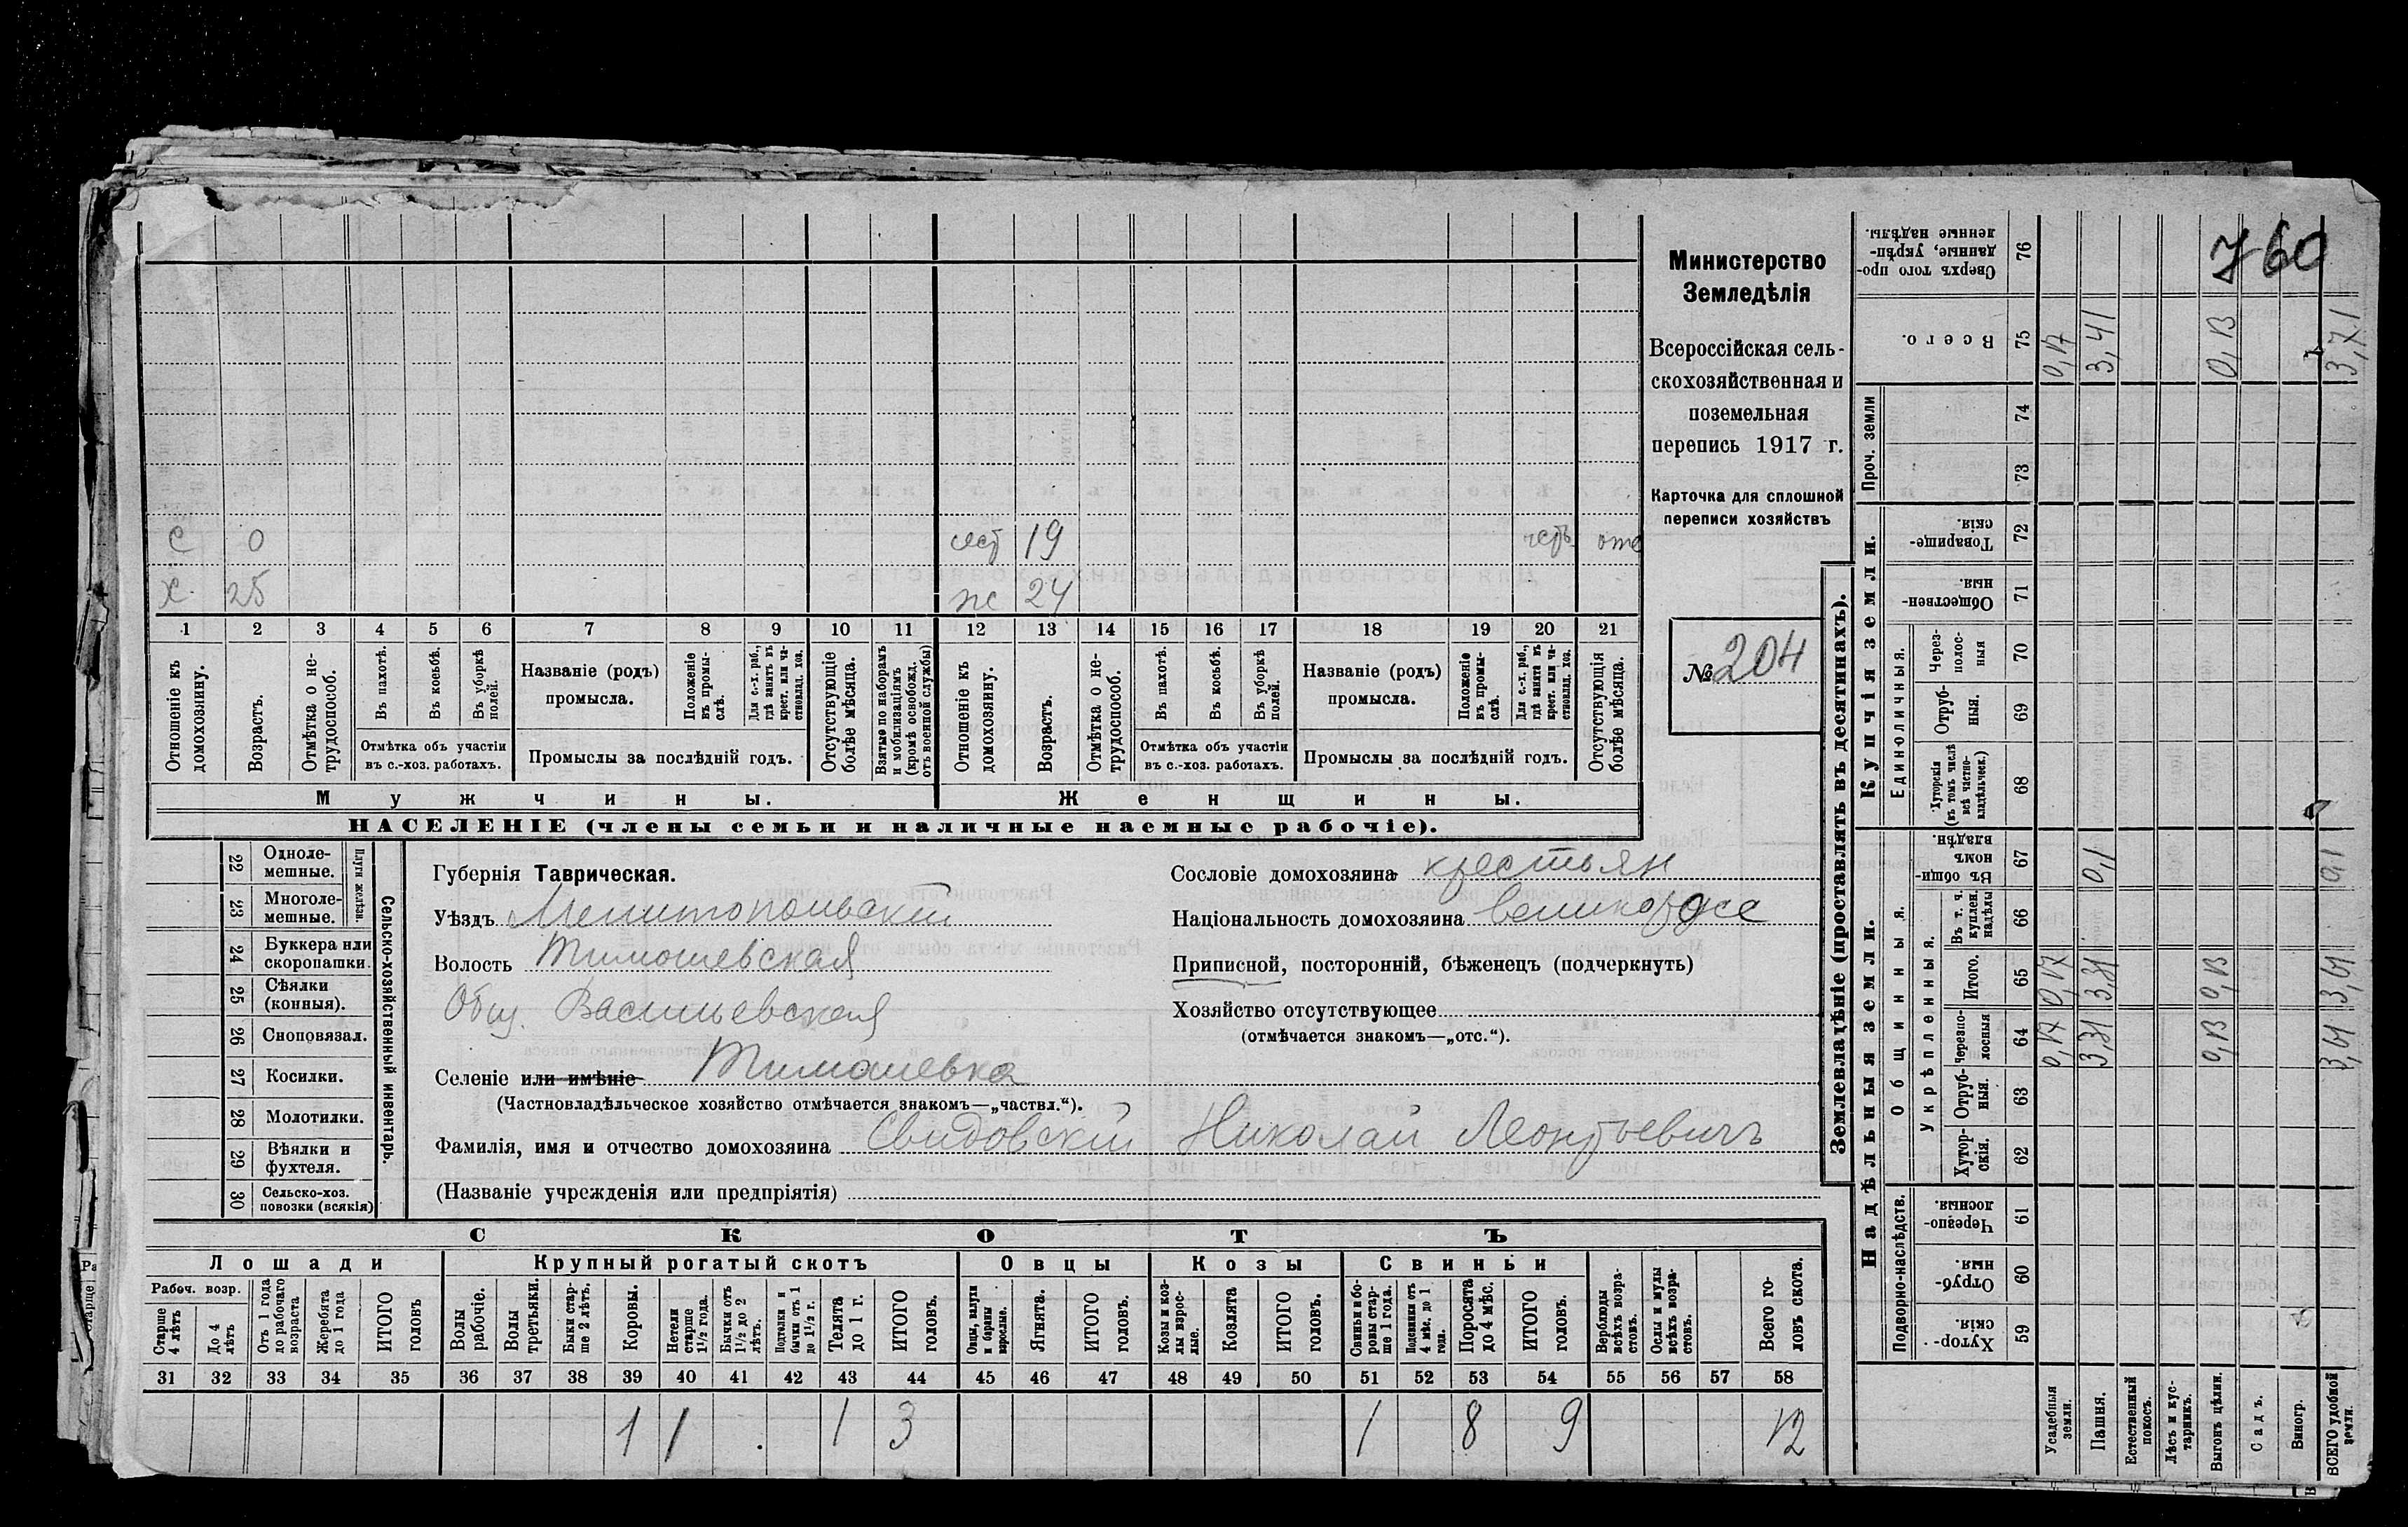 с 0 сест 19 черн. отс
х. 25 ж 24
1 2 3 4 5 6 7 8 9 10 11 12 13 14 15 16 17 18 19 20 21
Отношеніе къ домохозяину.
Возрастъ.
Отмѣтка о не-трудоспособ.
Въ пахотѣ.
Въ косьбѣ.
Въ уборкѣ полей.
Отмѣтка объ участіи
въ с.-хоз. работахъ.
Названіе (родъ)
промысла.
Положеніе въ промы-слѣ.
Для с.-х. раб., гдѣ занятъ въ крест. или ча-стновлад. хоз.
Промыслы за послѣдній годъ.
Отсутствующіе болѣе мѣсяца.
Взятые по наборамъ и мобилизаціямъ (кромѣ освобожд. отъ военной службы)
Отношеніе къ домохозяину.
Возрастъ.
Отмѣтка о не-трудоспособ.
Въ пахотѣ.
Въ косьбѣ.
Въ уборкѣ полей.
Отмѣтка объ участіи
въ с.-хоз. работахъ.
Названіе (родъ)
промысла.
Положеніе въ промы-слѣ.
Для с.-х. раб., гдѣ занята въ крест. или ча-стновлад. хоз.
Промыслы за послѣдній годъ.
Отсутствующія болѣе мѣсяца.
Мужчины. Женщины.
НАСЕЛЕНІЕ (члены семьи и наличные наемные рабочіе).
Министерство
Земледѣлія
Всероссійская сель-
скохозяйственная и
поземельная
перепись 1917 г.
Карточка для сплошной
переписи хозяйствъ
№ 204
22 Одноле-мешные.
23 Многоле-мешные.
Плуги желѣзн.
24 Буккера или скоропашки.
25 Сѣялки (конныя).
26 Сноповязал.
27 Косилки.
28 Молотилки.
29 Вѣялки и фухтеля.
30 Сельско-хоз. повозки (всякія)
Сельско-хозяйственный инвентарь.
Губернія Таврическая.
Уѣздъ Мелитопольскій
Волость Тимошевская
Общ. Васильевская
Селеніе или имѣніе Тимошевка
(Частновладѣльческое хозяйство отмѣчается знакомъ—„частвл.“).
Фамилія, имя и отчество домохозяина Свидовскій Николай Леонтьевичъ
(Названіе учрежденія или предпріятія)
Сословіе домохозяина крестьян
Національность домохозяина великоросс
Приписной, посторонній, бѣженецъ (подчеркнуть)
Хозяйство отсутствующее
(отмѣчается знакомъ—„отс.“).
СКОТЪ
Лошади Крупный рогатый скотъ Овцы Козы Свиньи
Рабоч. возр.
Старше 4 лѣтъ
До 4 лѣтъ
Отъ 1 года до рабочаго возраста
Жеребята до 1 года
ИТОГО головъ
Волы рабочіе.
Волы третьяки.
Быки стар-ше 2 лѣтъ.
Коровы.
Нетели старше 1½ года.
Бычки отъ 1½ до 2 лѣтъ.
Подтелки и бычки отъ 1 до 1½ г.
Телята до 1 г.
ИТОГО головъ.
Овцы, валухи и бараны взрослые.
Ягнята.
ИТОГО головъ.
Козы и коз-лы взрос-лые.
Козлята
ИТОГО головъ.
Свиньи и бо-ровы стар-ше 1 года.
Подсвинки отъ 4 мѣс. до 1 года.
Поросята до 4 мѣс.
ИТОГО головъ.
Верблюды всѣхъ возра-стовъ.
Ослы и мулы всѣхъ возра-стовъ.
Всего го-ловъ скота.
31 32 33 34 35 36 37 38 39 40 41 42 43 44 45 46 47 48 49 50 51 52 53 54 55 56 57 58
1 1 1 3 1 8 9 12
Землевладѣніе (проставлять въ десятинахъ).
760
Сверхъ того про-данные, укрѣп-ленные надѣлы. 76
Всего. 75 0,17 3,41 0,13 3,71
Проч. земли 74
73
Купчія земли.
Товарище-скія. 72
Обществен-ныя. 71
Единоличныя.
Через-полос-ныя 70
Отруб-ныя. 69
Хуторскія (въ томъ числѣ всѣ частно-владѣльческ.) 68
Надѣльныя земли.
Общинныя.
Въ общи-номъ владѣн. 67 0,1 0,1
Укрѣпленныя.
Въ т. ч. куплен. надѣлы 66
Итого. 65 0,17 3,31 0,13 3,61
Черезпо-лосныя 64 0,17 3,31 0,13 3,61
Отруб-ныя. 63
Хутор-скія. 62
Подворно-наслѣдств.
Черезпо-лосныя. 61
Отруб-ныя. 60
Хутор-скія. 59
Усадебныя земли.
Пашня.
Естественный покосъ.
Лѣсъ и кус-тарникъ.
Выгонъ цѣлин.
Садъ.
Виногр.
ВСЕГО удобной земли.